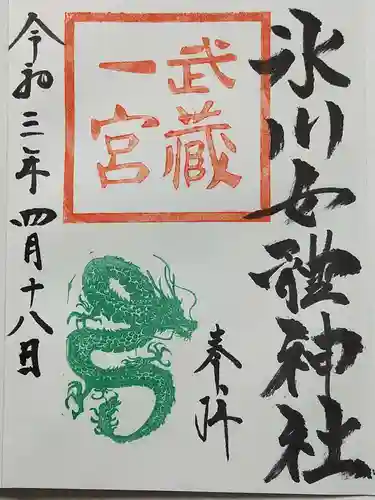 氷川女體神社
武蔵
一宮
奉拝
令和三年四月十八日